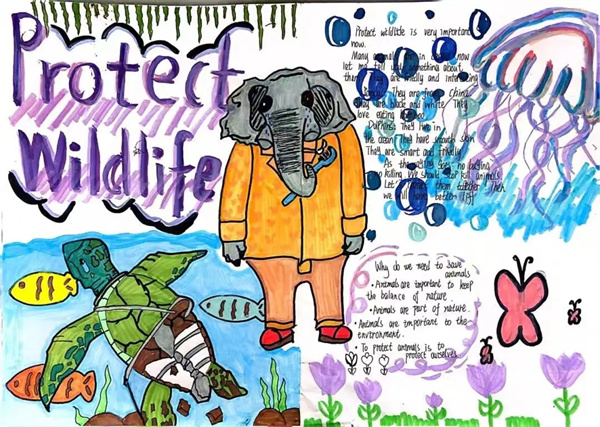 Protect
Wildlife
Protect wildlife is very important
now.
Many animals are in now
let me tell you something about
them. are friendly and interesting
Pandas They are from China
They are black and white They
love eating
Dolphins They live in
the ocean they have smooth skin
They are smart and friendly
As the saying goes no buying
no killing We should stop kill animals.
Let' protect them together! Then
we will have better life!
Why do we need to save
animals
· Animals are important to keep
the balance of nature.
· Animals are part of nature.
· Animals are important to the
environment.
· To protect animals is to
protect ourselves.